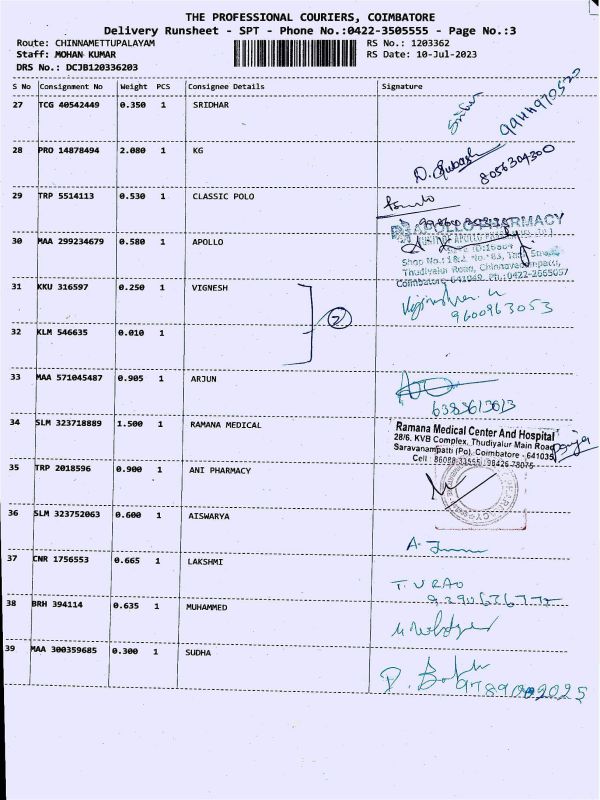 THE PROFESSIONAL COURIERS, COIMBATORE
Delivery Runsheet - SPT - Phone No.:0422-3505555 - Page No.:3
Route: CHINNAMETTUPALAYAM RS No.: 1203362
Staff: MOHAN KUMAR RS Date: 10-Jul-2023
DRS No.: DCJB120336203
S No Consignment No Weight PCS Consignee Details Signature
27 TCG 40542449 0.350 1 SRIDHAR
28 PRO 14878494 2.080 1 KG
D. Subash 8056304300
29 TRP 5514113 0.530 1 CLASSIC POLO
APOLLO PHARMACY
30 MAA 299234679 0.580 1 APOLLO
Shop No.: 1&2 No: 83,
Thudiyalur Road,
Coimbatore - 641049. Ph.:0422-2665057
31 KKU 316597 0.250 1 VIGNESH
9600963053
2
32 KLM 546635 0.010 1
33 MAA 571045487 0.905 1 ARJUN
6383613023
34 SLM 323718889 1.500 1 RAMANA MEDICAL
Ramana Medical Center And Hospital
28/6, KVB Complex, Thudiyalur Main Road
Saravanampatti (Po), Coimbatore - 641035
Cell : 86088 33555, 98426 78075
35 TRP 2018596 0.900 1 ANI PHARMACY
36 SLM 323752063 0.600 1 AISWARYA
37 CNR 1756553 0.665 1 LAKSHMI
T. V RAO
38 BRH 394114 0.635 1 MUHAMMED
39 MAA 300359685 0.300 1 SUDHA